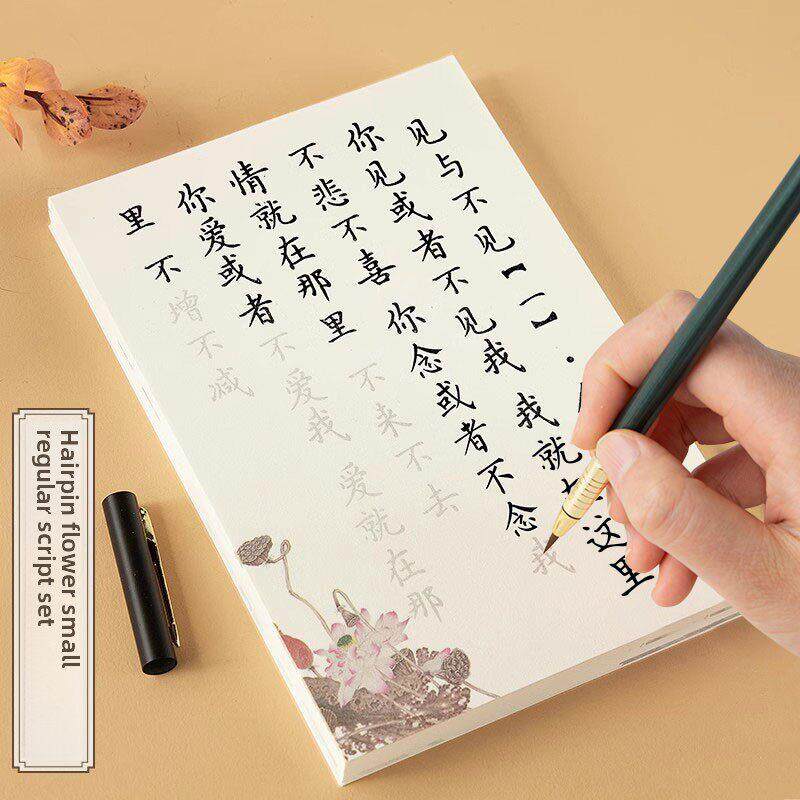 见与不见【一】·
你见或者不见我 我就在这里
不悲不喜 你念或者不念我
情就在那里 不来不去
你爱或者不爱我 爱就在那
里 不增不减
Hairpin flower small
regular script set